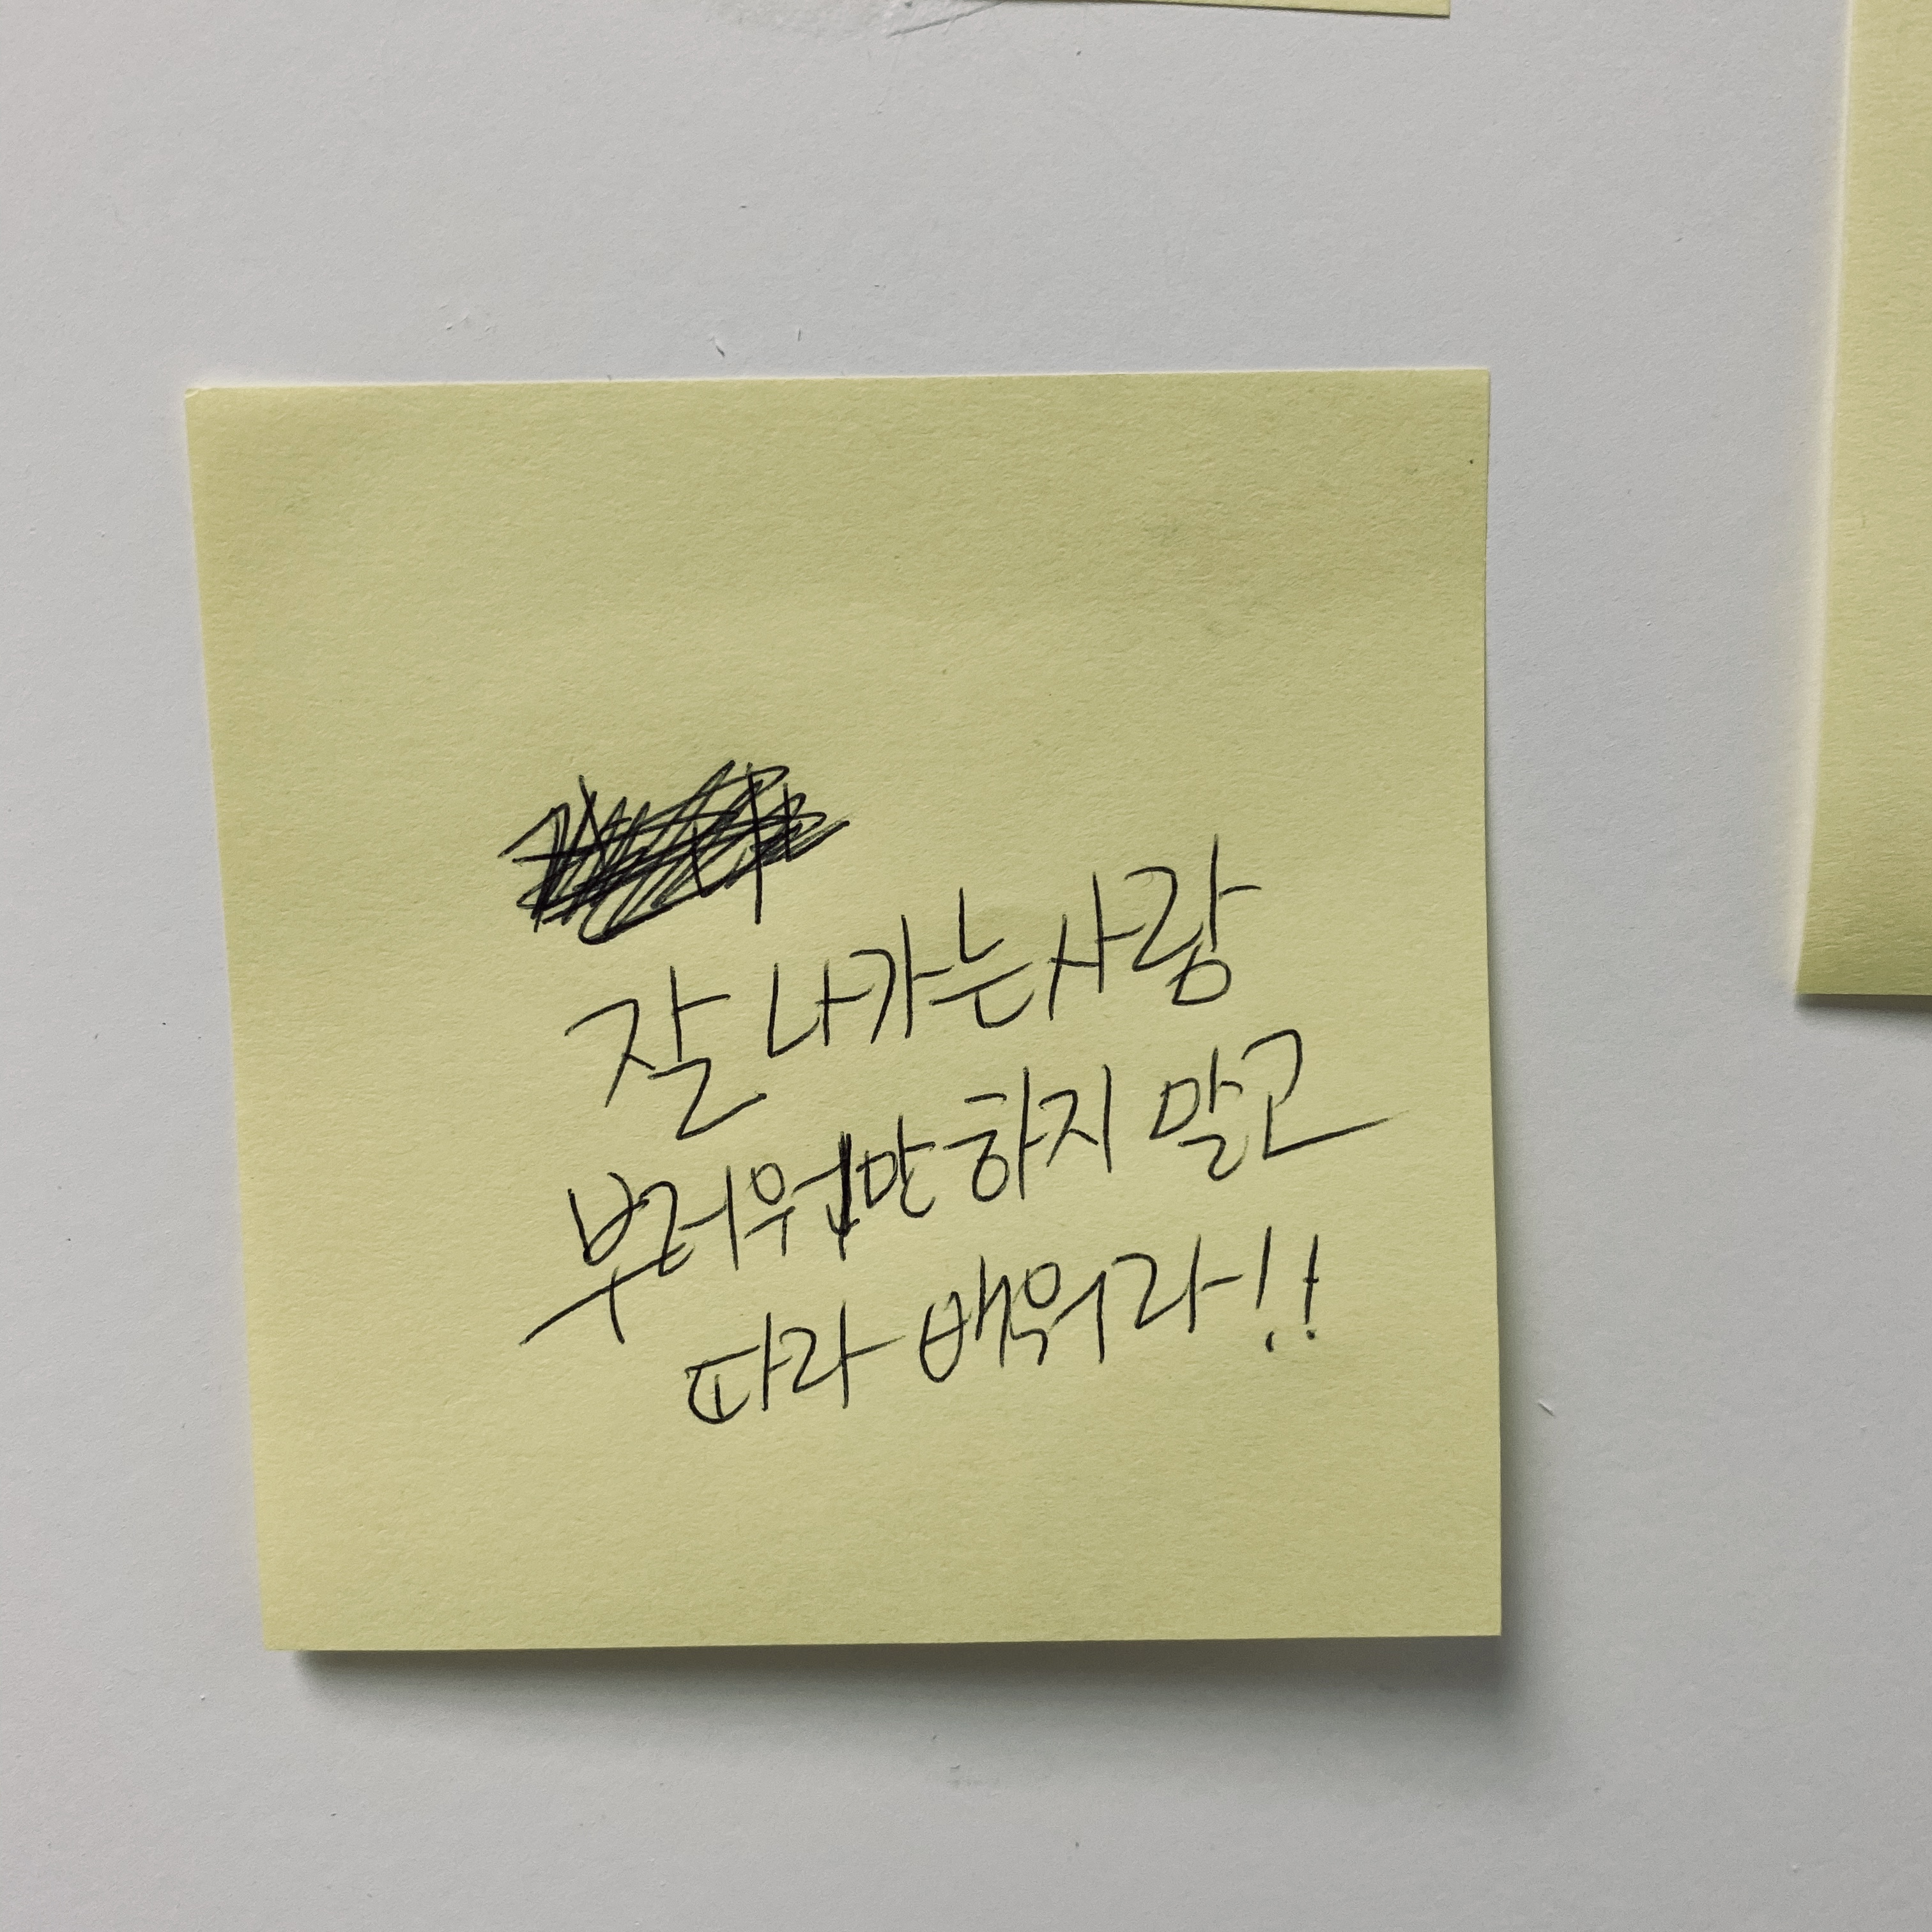 잘 나가는 사람
부러워만 하지 말고
따라 배워라!!